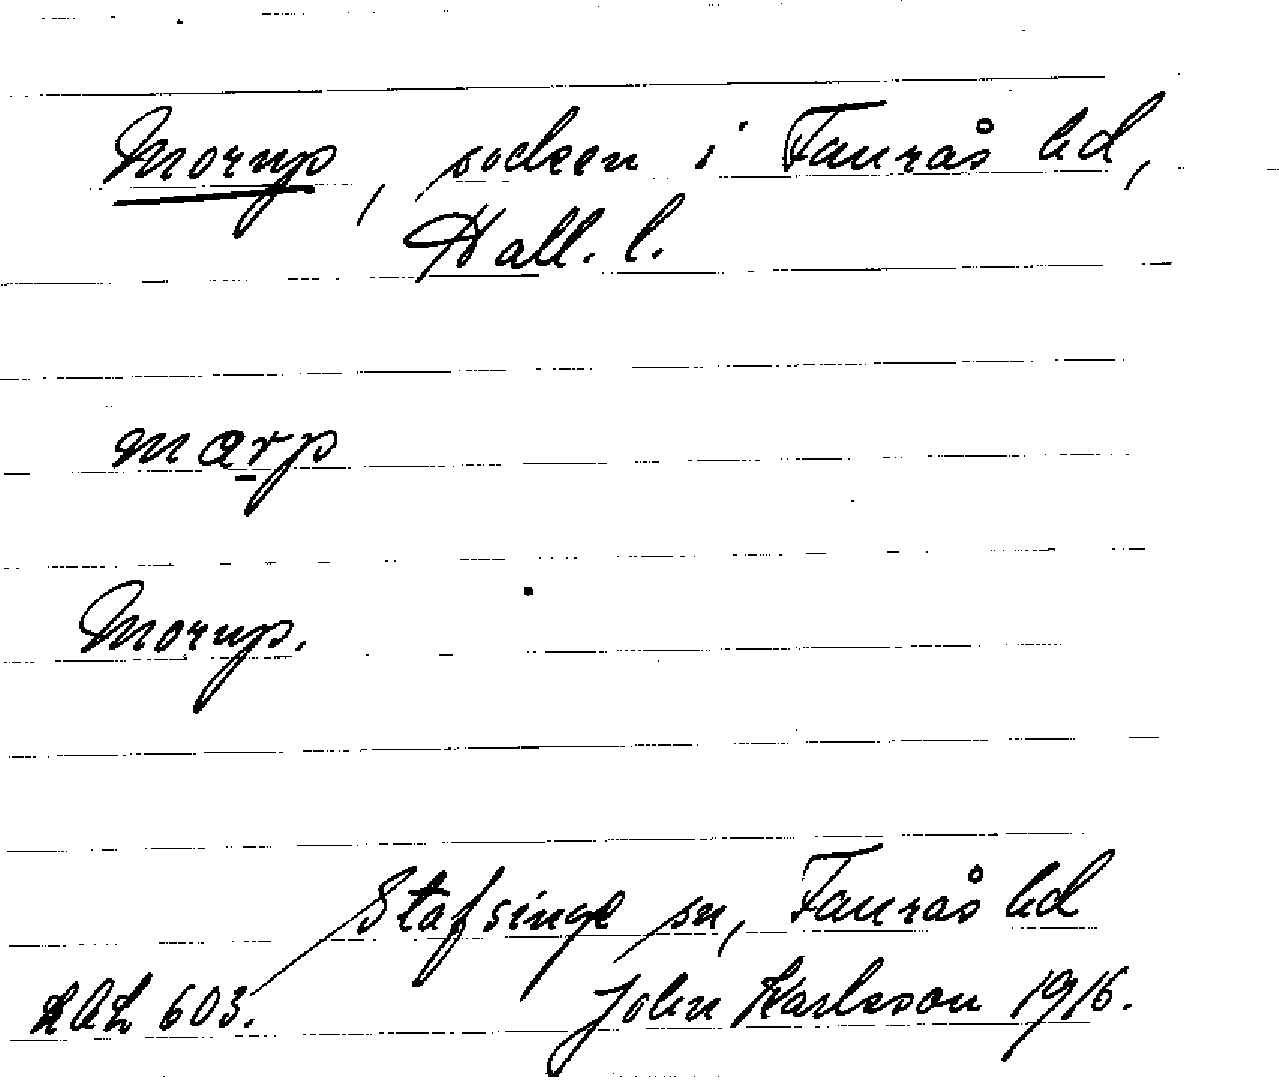 Morup, socken i Faurås hd,
Hall. l.
marp
Morup.
Stafsinge sn, Faurås hd
603. John Karlsson 1916.